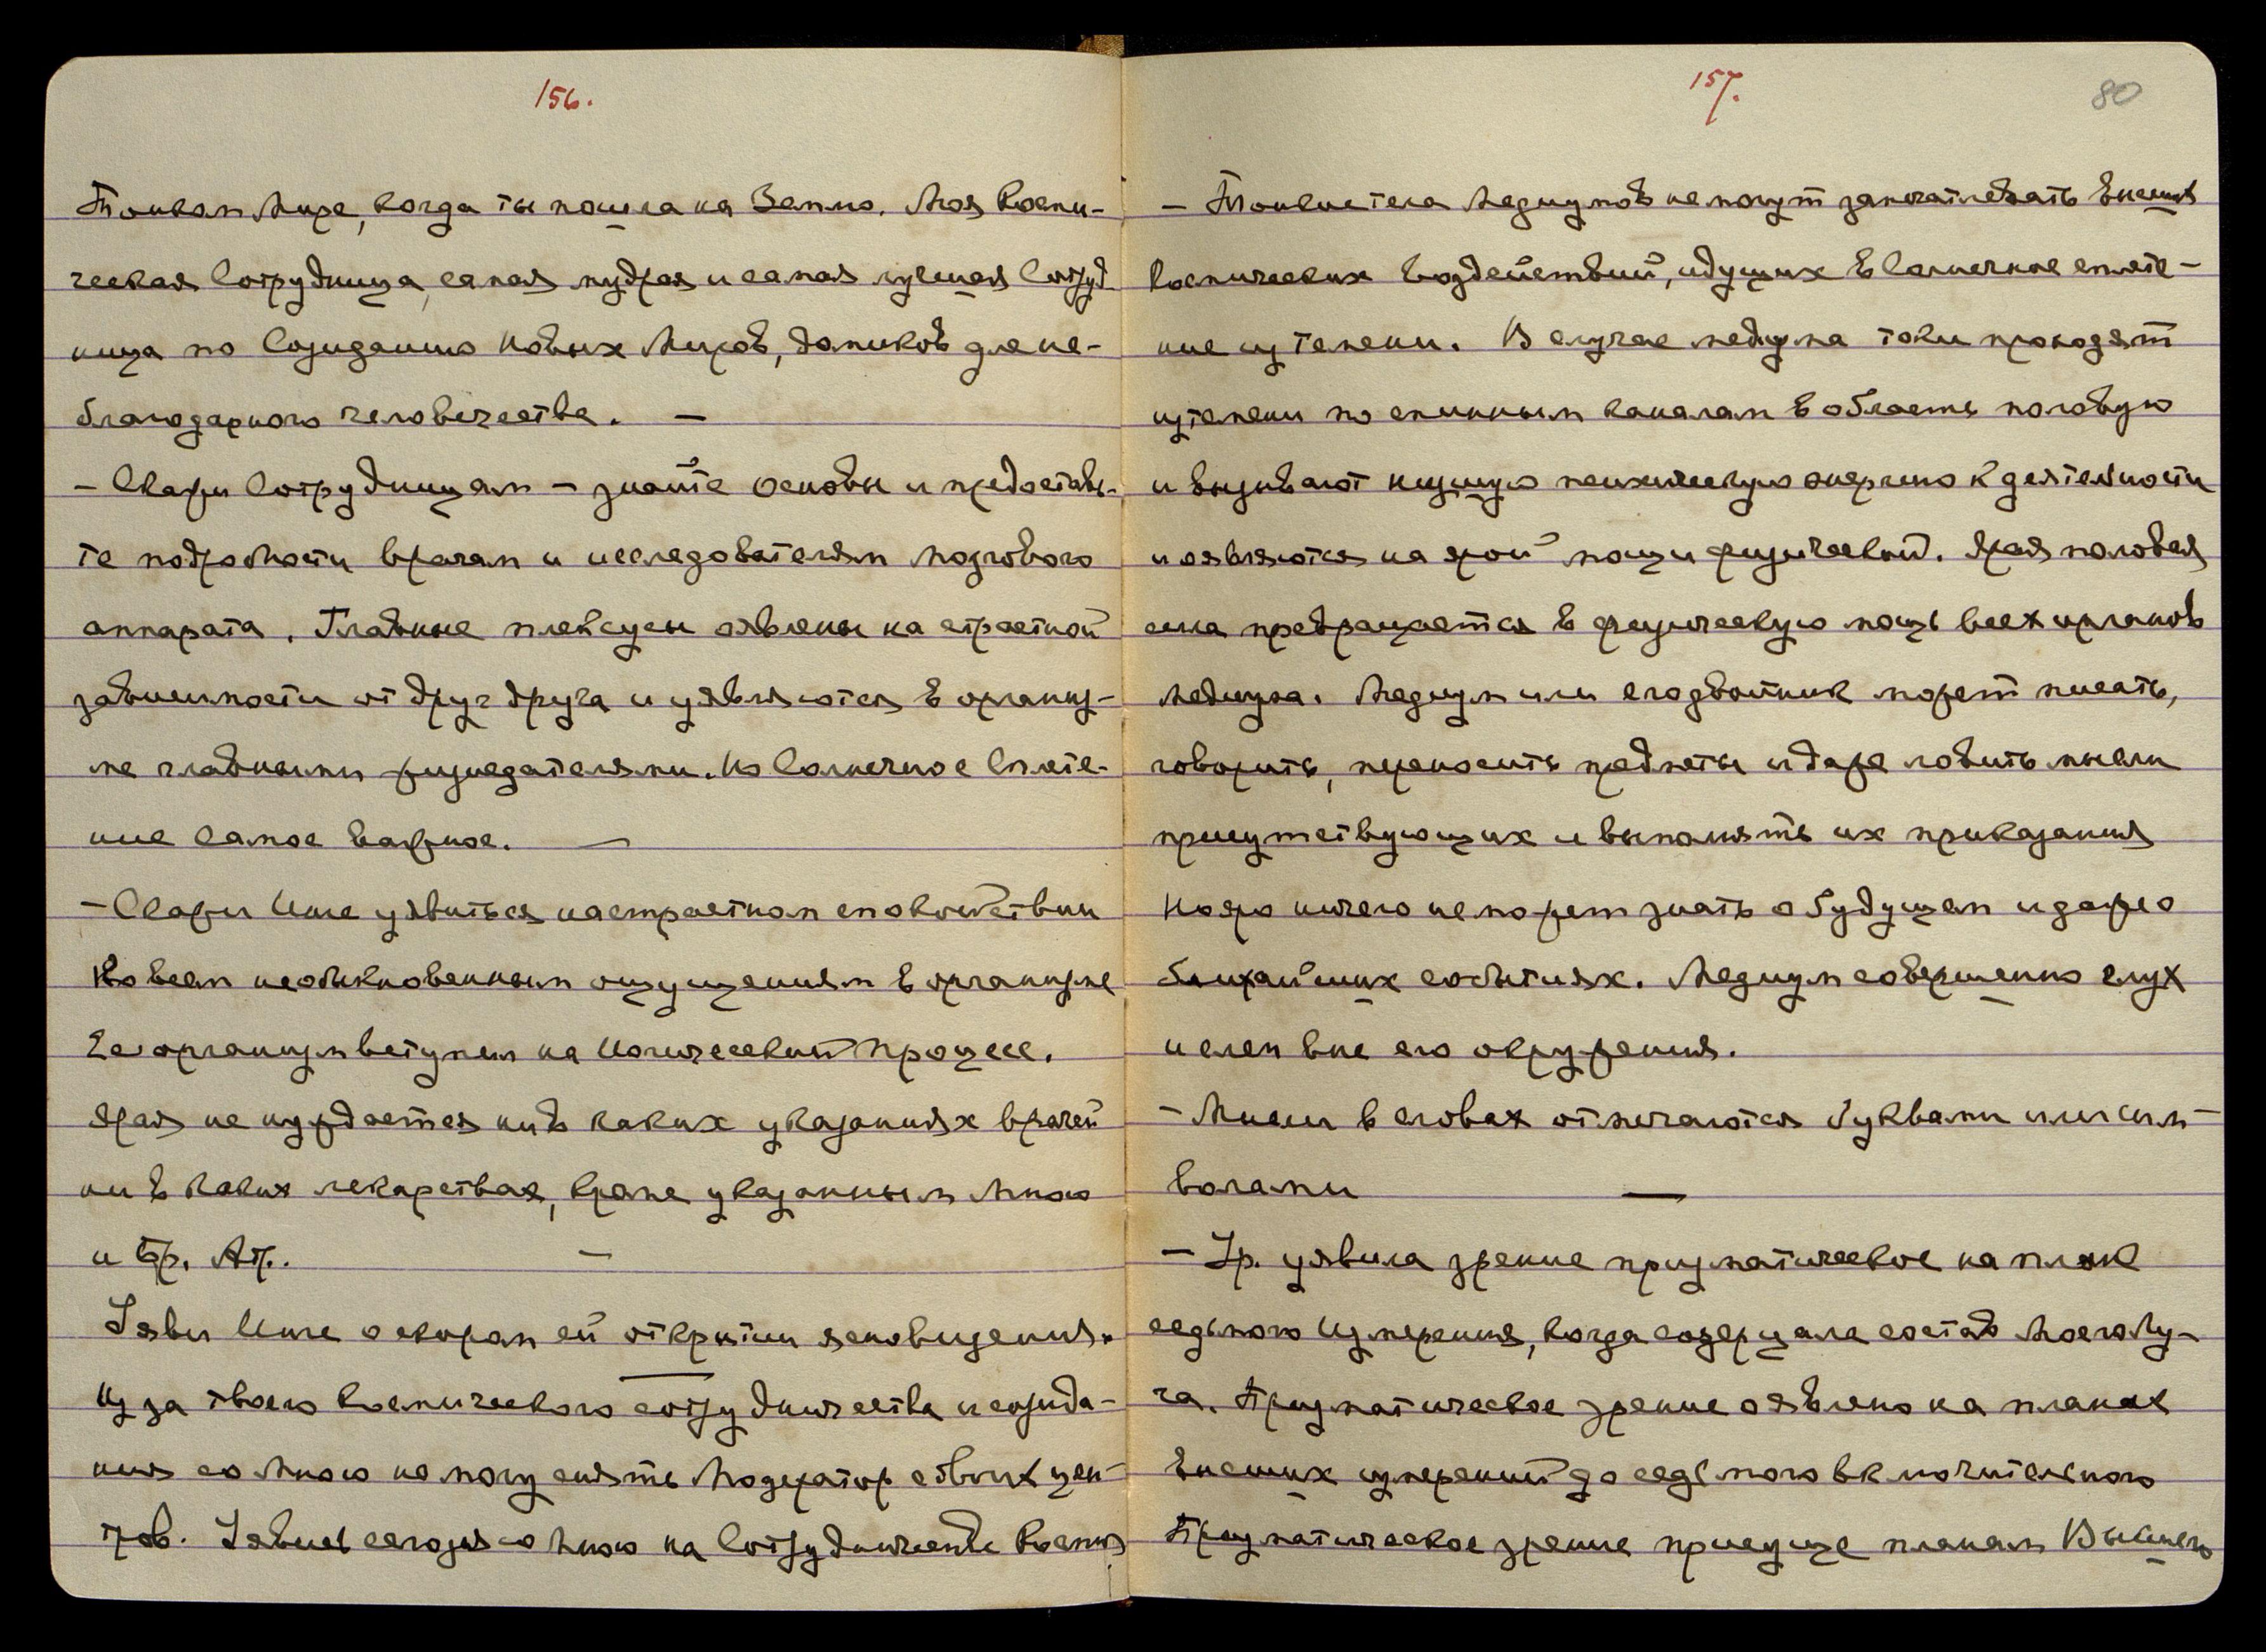 156.
Тонком Мире, когда ты пошла на Землю. Моя Косми-
ческая Сотрудница, самая мудрая и самая лучшая Сотруд-
ница по Созиданию Новых Миров, домиков для не-
благодарного человечества. —
- Скажи Сотрудницам - знайте основы и предоставь-
те подробности врачам и исследователям мозгового
аппарата. Главные плексусы оявлены на страстной
зависимости от друг друга и уявляются в организ-
ме главными жизнедателями. Но Солнечное Сплете-
ние самое важное. —
- Скажи Инге уявиться на страстном спокойствии
ко всем необыкновенным ощущениям в организме
Ее организм вступил на Йогический процесс.
Ярая не нуждается ни в каких указаниях врачей
ни в каких лекарствах, кроме указанным Мною
и Бр. Ат. —
Уяви Инге о скором ей открытии ясновидения.
—
Из за твоего космического сотрудничества и созида-
ния со Мною не могу снять Модератор с твоих цен-
тров. Уявись сегодня со Мною на Сотрудничестве Космич
157.
80
- Тонкие тела Медиумов не могут запечатлевать Внешних
Космических воздействий, идущих в Солнечное сплете-
ние из темени. В случае медиума токи проходят
из темени по спинным каналам в область половую
и вызывают низшую психическую энергию к деятельности
и оявляются на ярой мощи физической. Ярая половая
сила превращается в физическую мощь всех органов
Медиума. Медиум или его двойник может писать,
говорить, переносить предметы и даже ловить мысли
присутствующих и выполнять их приказания
Но яро ничего не может знать о будущем и даже о
ближайших событиях. Медиум совершенно глух
и слеп вне его окружения.
- Мысли в словах отмечаются буквами или сим-
волами —
- Ур. уявила зрение призматическое на план
седьмого Измерения, когда созерцала состав Моего Лу-
ча. Призматическое зрение оявлено на планах
Внешних измерений до седьмого включительного
Призматическое зрение присуще планам Высшего